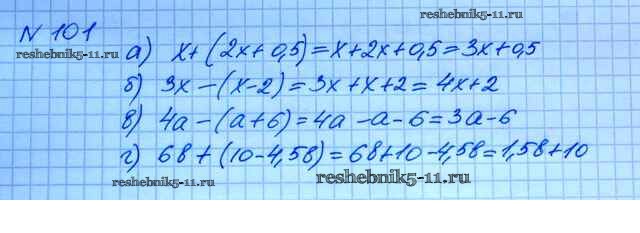 № 101
reshebnik5-11.ru
а) x+(2x+0,5)=x+2x+0,5=3x+0,5
reshebnik5-11.ru
б) 3x-(x-2)=3x+x+2=4x+2
в) 4a-(a+6)=4a-a-6=3a-6
г) 6b+(10-4,5b)=6b+10-4,5b=1,5b+10
reshebnik5-11.ru
reshebnik5-11.ru
reshebnik5-11.ru